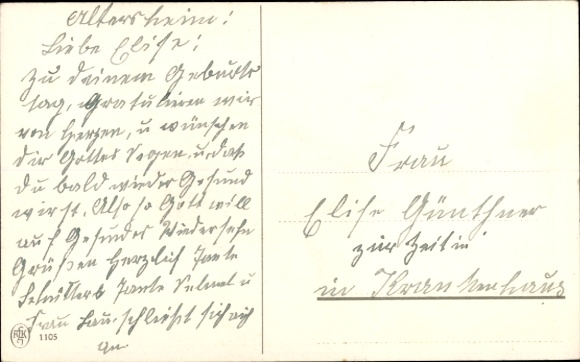 Altersheim!
Liebe Elise!
Zu deinem Geburts
tag, Gratulieren wir
von Herzen, u wünschen
dir Gottes Segen, u, daß
du bald wieder Gesund
wirst. Also so Gott will
auf Gesundes Wiedersehn
Grüßen Herzlich Tante
Tante u
Frau schließt sich auch
an.
1105
Frau
Elise Günthner
zur Zeit in
in Krankenhaus